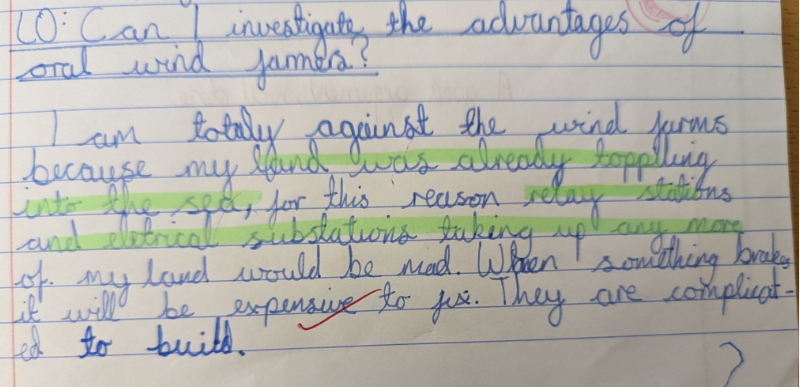 LO: Can I investigate the advantages of
oral wind farmers?
I am totaly against the wind farms
because my land was already topplling
into the sea, for this reason relay stations
and eletrical substations taking up any more
of my land would be mad. When something brakes
it will be expensive to fix. They are complicat-
ed to build.